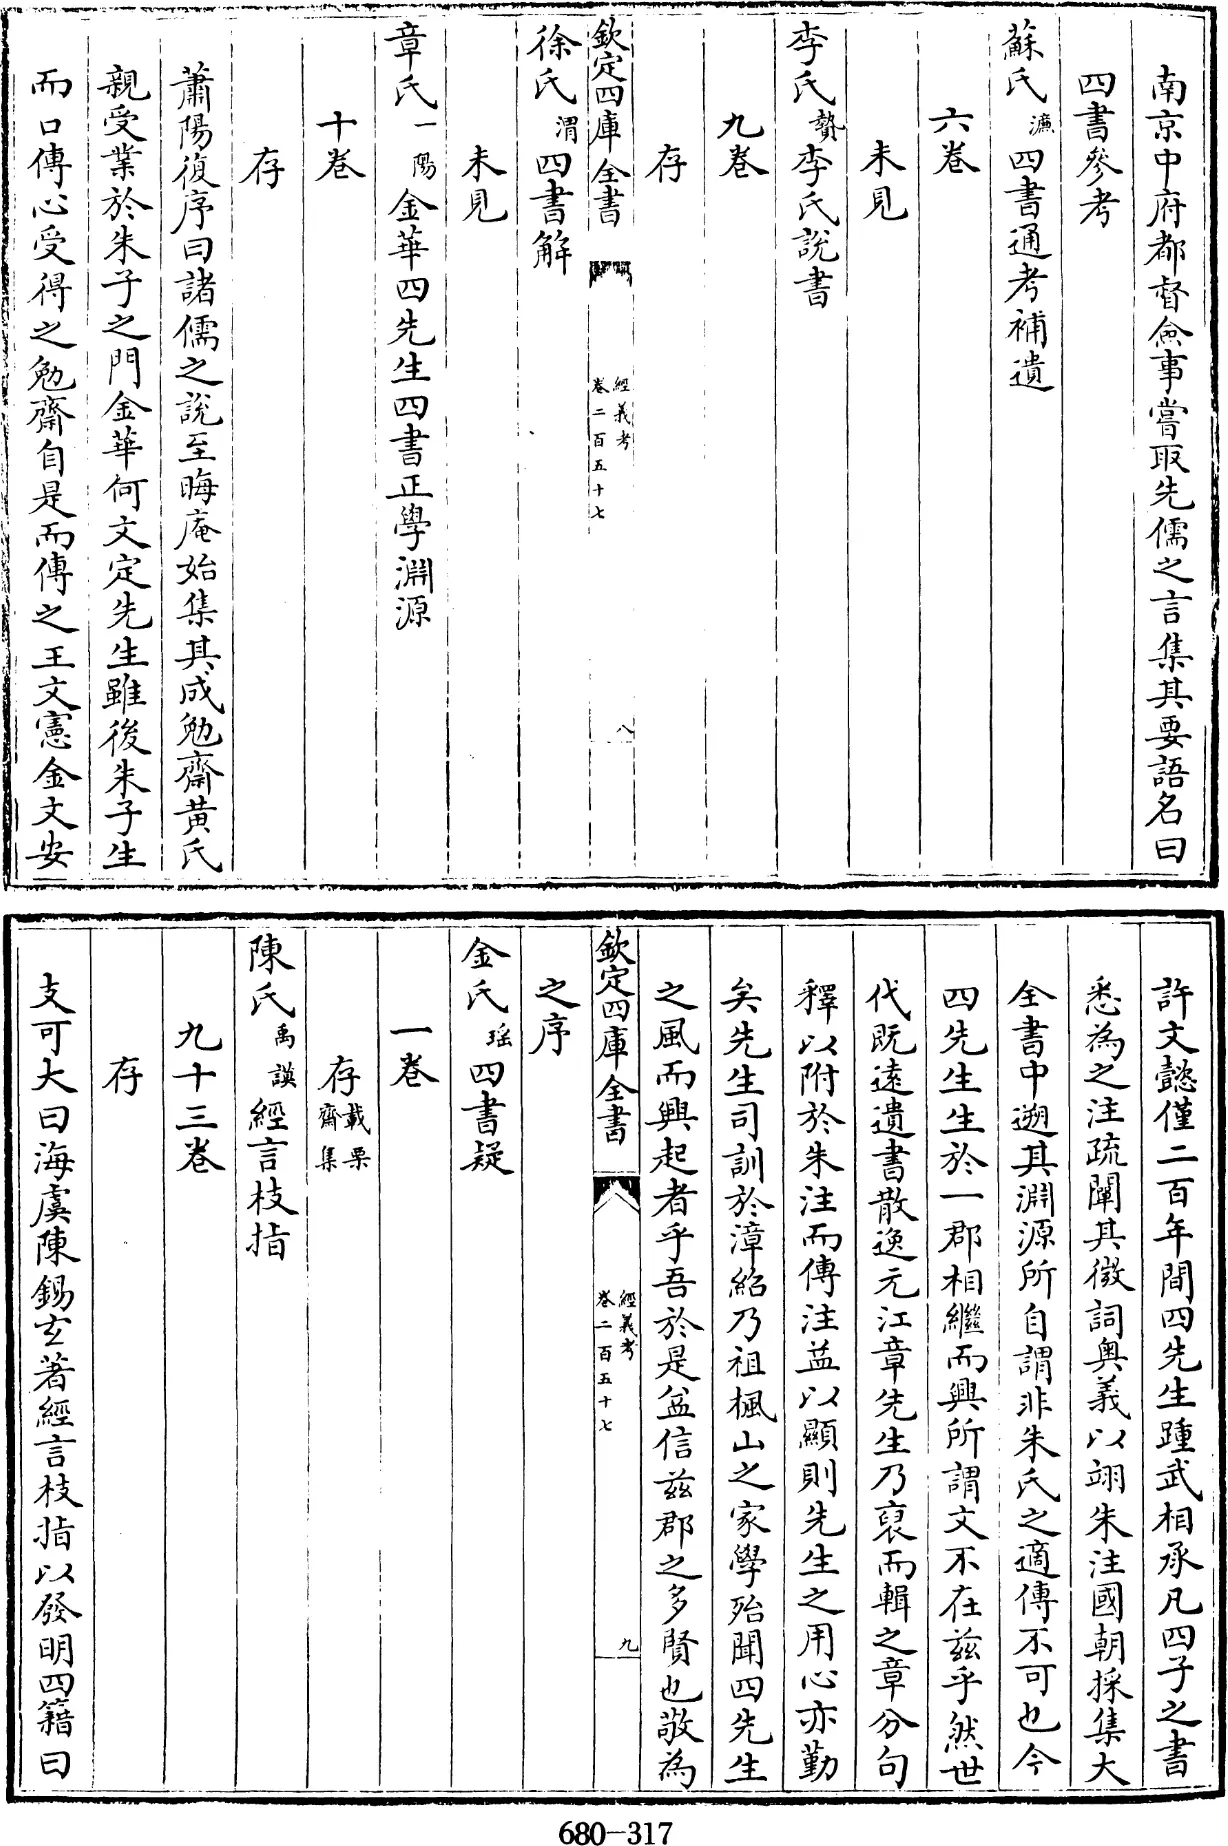 南京中府都督僉事嘗取先儒之言集其要語名曰
四書參考
蘇氏濂四書通考補遺
六卷
未見
李氏贄李氏說書
九卷
存
欽定四庫全書
經義考
卷二百五十七
八
徐氏渭四書解
未見
章氏一陽金華四先生四書正學淵源
十卷
存
蕭陽復序曰諸儒之說至晦庵始集其成勉齋黃氏
親受業於朱子之門金華何文定先生雖後朱子生
而口傳心受得之勉齋自是而傳之王文憲金文安
許文懿僅二百年間四先生踵武相承凡四子之書
悉為之注疏闡其微詞奧義以翊朱注國朝採集大
全書中遡其淵源所自謂非朱氏之適傳不可也今
四先生生於一郡相繼而興所謂文不在茲乎然世
代既遠遺書散逸元江章先生乃裒而輯之章分句
釋以附於朱注而傳注益以顯則先生之用心亦勤
矣先生司訓於漳紹乃祖楓山之家學殆聞四先生
之風而興起者乎吾於是益信茲郡之多賢也敬為
欽定四庫全書
經義考
卷二百五十七
九
之序
金氏瑶四書疑
一卷
存載栗齋集
陳氏禹謨經言枝指
九十三卷
存
支可大曰海虞陳錫玄著經言枝指以發明四籍曰
680-317